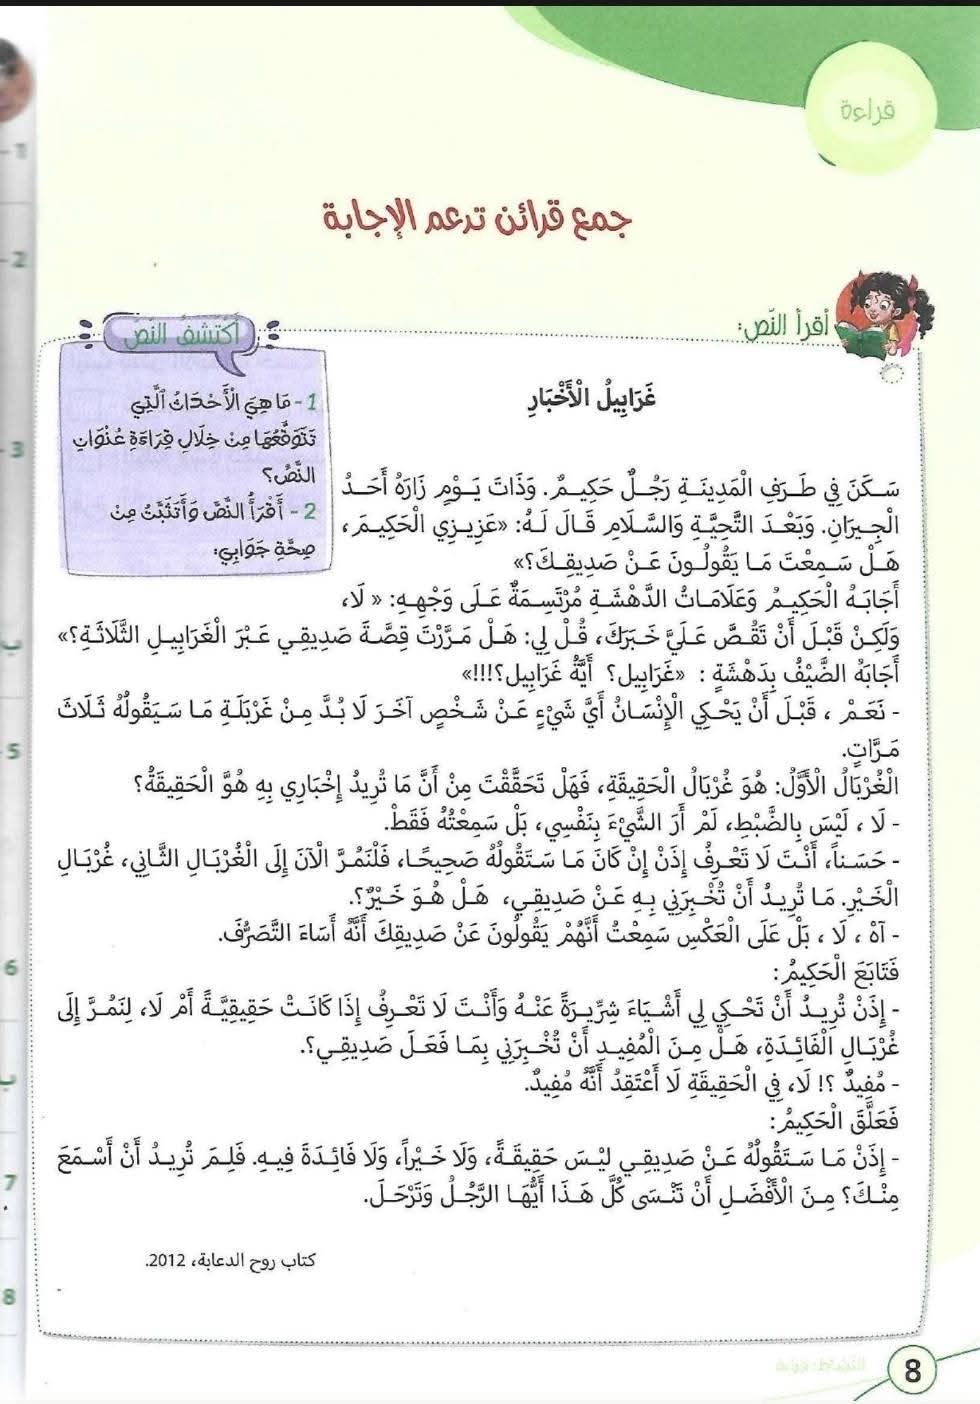 قراءة
جمع قرائن تدعم الإجابة
أقرأ النّص:
أكتشف النص
1 - مَا هِيَ الْأَحْدَاثُ الَّتِي
تَتَوَقَّعُهَا مِنْ خِلَالِ قِرَاءَةِ عُنْوَانِ
النَّصِّ؟
2 - أَقْرَأُ النَّصَّ وَأَتَثَبَّتُ مِنْ
صِحَّةِ جَوَابِي:
غَرَابِيلُ الْأَخْبَارِ
سَكَنَ فِي طَرَفِ الْمَدِينَةِ رَجُلٌ حَكِيمٌ. وَذَاتَ يَوْمٍ زَارَهُ أَحَدُ
الْجِيرَانِ. وَبَعْدَ التَّحِيَّةِ وَالسَّلَامِ قَالَ لَهُ: «عَزِيزِي الْحَكِيمَ،
هَلْ سَمِعْتَ مَا يَقُولُونَ عَنْ صَدِيقِكَ؟»
أَجَابَهُ الْحَكِيمُ وَعَلَامَاتُ الدَّهْشَةِ مُرْتَسِمَةٌ عَلَى وَجْهِهِ: « لَا،
وَلَكِنْ قَبْلَ أَنْ تَقُصَّ عَلَيَّ خَبَرَكَ، قُلْ لِي: هَلْ مَرَّرْتَ قِصَّةَ صَدِيقِي عَبْرَ الْغَرَابِيلِ الثَّلَاثَةِ؟»
أَجَابَهُ الضَّيْفُ بِدَهْشَةٍ : «غَرَابِيل؟ أَيَّةُ غَرَابِيل؟!!!»
- نَعَمْ ، قَبْلَ أَنْ يَحْكِي الْإِنْسَانُ أَيَّ شَيْءٍ عَنْ شَخْصٍ آخَرَ لَا بُدَّ مِنْ غَرْبَلَةِ مَا سَيَقُولُهُ ثَلَاثَ
مَرَّاتٍ.
الْغُرْبَالُ الْأَوَّلُ: هُوَ غُرْبَالُ الْحَقِيقَةِ، فَهَلْ تَحَقَّقْتَ مِنْ أَنَّ مَا تُرِيدُ إِخْبَارِي بِهِ هُوَّ الْحَقِيقَةُ؟
- لَا ، لَيْسَ بِالضَّبْطِ، لَمْ أَرَ الشَّيْءَ بِنَفْسِي، بَلْ سَمِعْتُهُ فَقَطْ.
- حَسَناً، أَنْتَ لَا تَعْرِفُ إِذَنْ إِنْ كَانَ مَا سَتَقُولُهُ صَحِيحًا، فَلْنَمُرَّ الْآنَ إِلَى الْغُرْبَالِ الثَّانِي، غُرْبَالِ
الْخَيْرِ. مَا تُرِيدُ أَنْ تُخْبِرَنِي بِهِ عَنْ صَدِيقِي، هَلْ هُوَ خَيْرٌ؟.
- آهْ ، لَا ، بَلْ عَلَى الْعَكْسِ سَمِعْتُ أَنَّهُمْ يَقُولُونَ عَنْ صَدِيقِكَ أَنَّهُ أَسَاءَ التَّصَرُّفَ.
فَتَابَعَ الْحَكِيمُ:
- إِذَنْ تُرِيدُ أَنْ تَحْكِي لِي أَشْيَاءَ شِرِّيرَةً عَنْهُ وَأَنْتَ لَا تَعْرِفُ إِذَا كَانَتْ حَقِيقِيَّةً أَمْ لَا، لِنَمُرَّ إِلَى
غُرْبَالِ الْفَائِدَةِ، هَلْ مِنَ الْمُفِيدِ أَنْ تُخْبِرَنِي بِمَا فَعَلَ صَدِيقِي؟.
- مُفِيدٌ ؟! لَا، فِي الْحَقِيقَةِ لَا أَعْتَقِدُ أَنَّهُ مُفِيدٌ.
فَعَلَّقَ الْحَكِيمُ:
- إِذَنْ مَا سَتَقُولُهُ عَنْ صَدِيقِي لَيْسَ حَقِيقَةً، وَلَا خَيْراً، وَلَا فَائِدَةَ فِيهِ. فَلِمَ تُرِيدُ أَنْ أَسْمَعَ
مِنْكَ؟ مِنَ الْأَفْضَلِ أَنْ تَنْسَى كُلَّ هَذَا أَيُّهَا الرَّجُلُ وَتَرْحَلَ.
كتاب روح الدعابة، 2012.
8